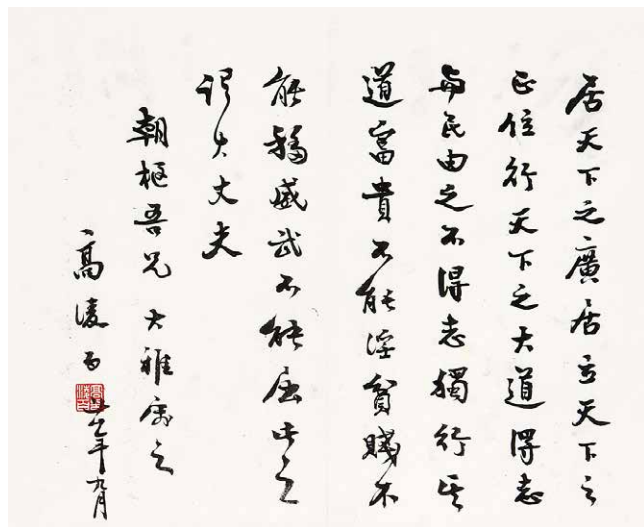 居天下之廣居立天下之
正位行天下之大道得志
與民由之不得志獨行其
道富貴不能淫貧賤不
能移威武不能屈此之
謂大丈夫
朝樞吾兄 大雅屬
高凌百
年九月